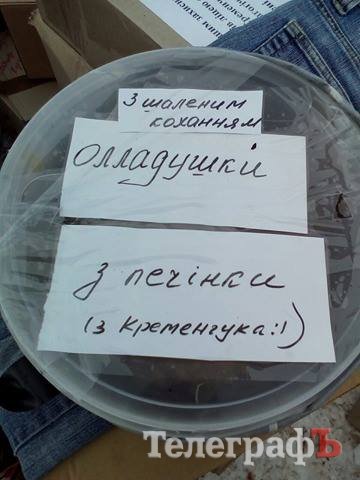 шим захисн
з шаленим
коханням
олладушки
з печінки
(з Кременчука:))
ТелеграфЪ